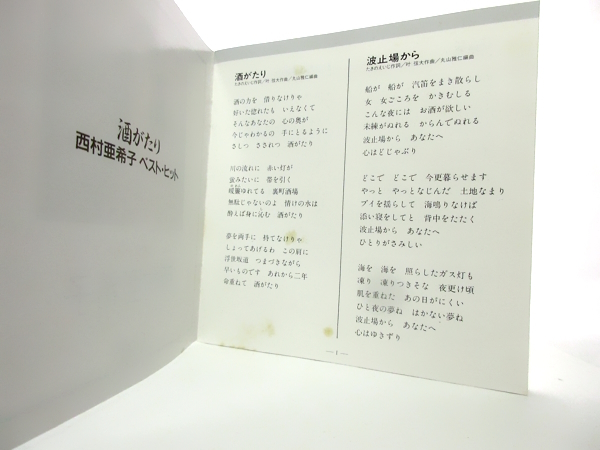 酒がたり
西村亜希子 ベスト・ヒット
酒がたり
たきのえいじ作詞／叶 弦大作曲／丸山雅仁編曲
酒の力を 借りなけりゃ
好いた惚れたも いえなくて
そんなあなたの 心の奥が
今じゃわかるの 手にとるように
さしつ さされつ 酒がたり
川の流れに 赤い灯が
滲みたいに 帯を引く
暖簾ゆれてる 裏町酒場
無駄じゃないのよ 情けの水は
酔えば身に沁む 酒がたり
夢を両手に 持てなけりゃ
しょってあげるわ この肩に
浮世坂道 つまづきながら
早いものです あれから二年
命重ねて 酒がたり
波止場から
たきのえいじ作詞／叶 弦大作曲／丸山雅仁編曲
船が 船が 汽笛をまき散らし
女 女ごころを かきむしる
こんな夜には お酒が欲しい
未練がぬれる からんでぬれる
波止場から あなたへ
心はどしゃぶり
どこで どこで 今更暮らせます
やっと やっとなじんだ 土地なまり
ブイを揺らして 海鳴りなけば
添い寝をしてと 背中をたたく
波止場から あなたへ
ひとりがさみしい
海を 海を 照らしたガス灯も
凍り 凍りつきそな 夜更け頃
肌を重ねた あの日がにくい
ひと夜の夢ね はかない夢ね
波止場から あなたへ
心はゆきずり
— 1 —